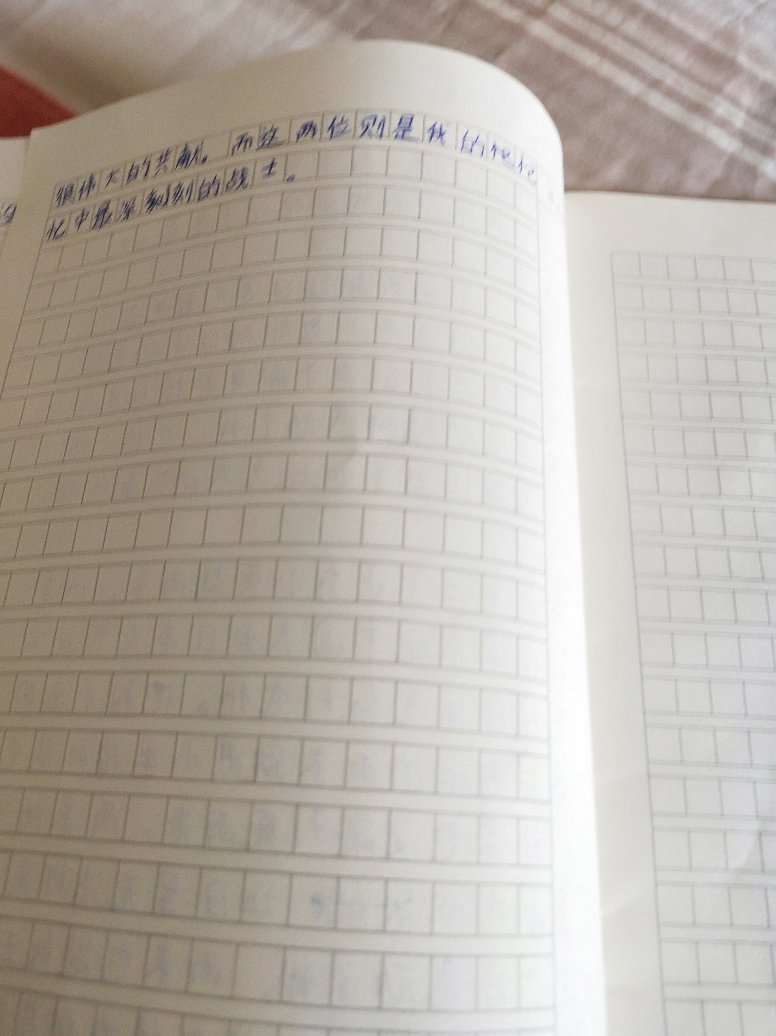 很伟大的贡献。而这两位则是我的记忆
忆中最深刻刻的战士。